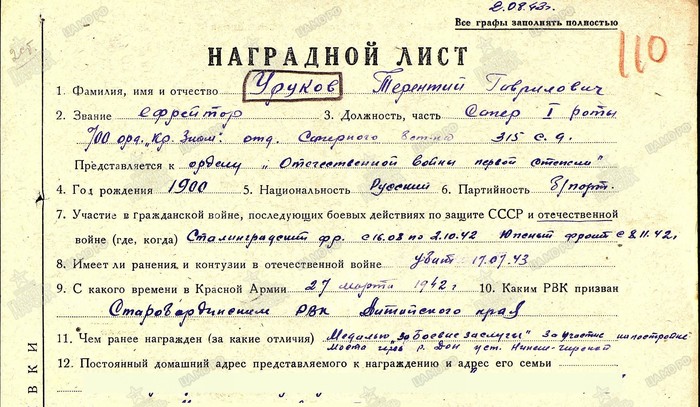 2.08.43г.
Все графы заполнять полностью
110
НАГРАДНОЙ ЛИСТ
1. Фамилия, имя и отчество Уруков Терентий Гаврилович
2. Звание ефрейтор 3. Должность, часть Сапер I роты
700 орд. "Кр. Знам." отд. Саперного бат-на 315 с.д.
Представляется к ордену "Отечественной войны первой степени"
4. Год рождения 1900 5. Национальность Русский 6. Партийность б/парт.
7. Участие в гражданской войне, последующих боевых действиях по защите СССР и отечественной
войне (где, когда) Сталинградский фр. с 16.08 по 2.10.42 Южный фронт с 8.11.42,
8. Имеет ли ранения, и контузии в отечественной войне 17.07.43
9. С какого времени в Красной Армии 27 марта 1942 г. 10. Каким РВК призван
Старобардинским РВК Алтайского края
11. Чем ранее награжден (за какие отличия) Медалью "За боевые заслуги" За участие на постройке
моста через р. Дон
12. Постоянный домашний адрес представляемого к награждению и адрес его семьи
ВКИ